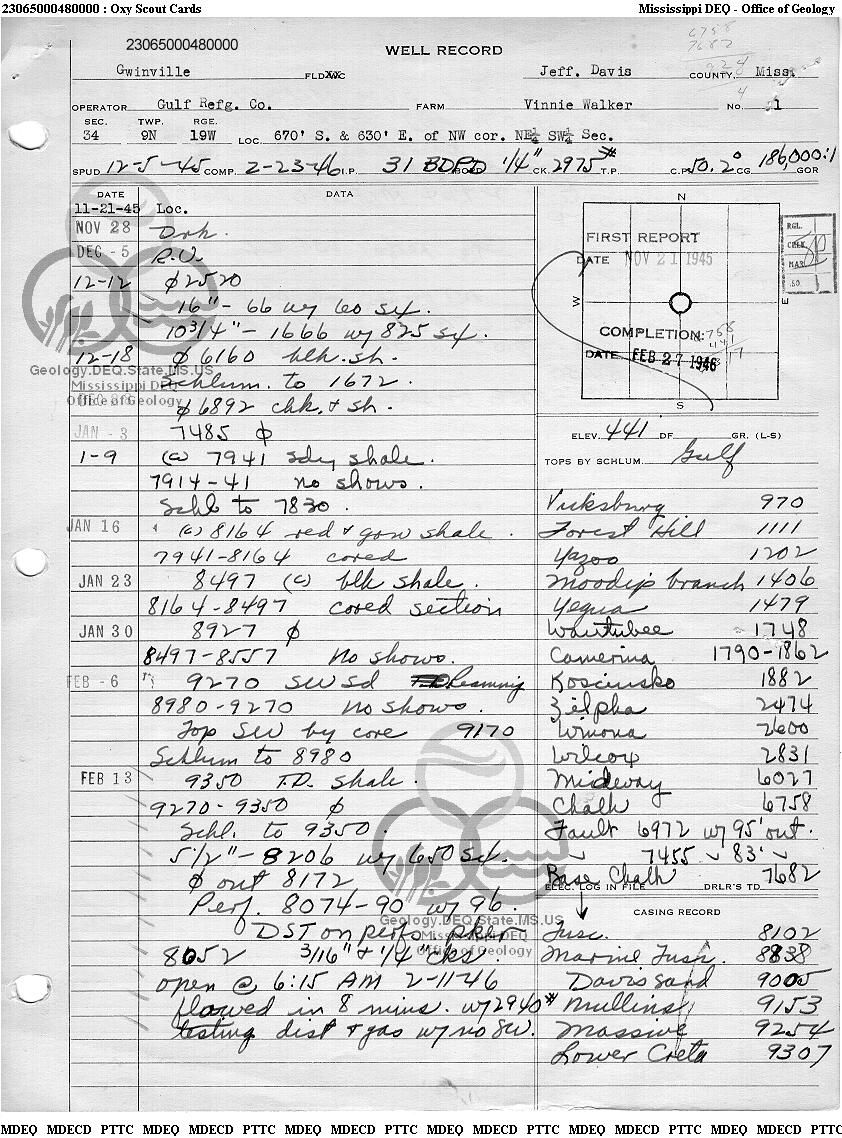 23065000480000 : Oxy Scout Cards
Mississippi DEQ - Office of Geology
23065000480000
WELL RECORD
6758
7682
924
4
Gwinville FLD. xxC Jeff. Davis COUNTY, Miss.
OPERATOR Gulf Refg. Co. FARM Vinnie Walker NO. 1
SEC. TWP. RGE.
34 9N 19W LOC. 670' S. & 630' E. of NW cor. NE¼ SW¼ Sec.
SPUD 12-5-45 COMP. 2-23-46 I.P. 31 BDPD 1/4" CK. 2975# T.P. C.P. 50.2° CG 186,000:1 GOR
DATE DATA
11-21-45 Loc.
NOV 28 Drk.
DEC - 5 R.U.
12-12 φ 2520
16" - 66 w/ 60 sx.
10 3/4" - 1666 w/ 825 sx.
12-18 φ 6160 blk. sh.
Schlum. to 1672.
φ 6892 chk. & sh.
JAN - 3 7485 φ
1-9 (c) 7941 sdy shale.
7914-41 no shows.
Schl to 7830.
JAN 16 (c) 8164 red & grn shale.
7941-8164 cored
JAN 23 8497 (c) blk shale.
8164-8497 cored section
JAN 30 8927 φ
8497-8557 No shows.
FEB - 6 9270 SW sd Reaming
8980-9270 no shows.
Top SW by core 9170
Schlum to 8980
FEB 13 9350 T.D. shale.
9270-9350 φ
Schl. to 9350.
5 1/2" - 8206 w/ 650 sx.
φ out 8172
Perf. 8074-90 w/ 96.
DST on perfs pker
8052 3/16" & 1/4" cks.
open @ 6:15 AM 2-11-46
flowed in 8 mins. w/ 2940#
testing dist & gas w/ no SW.
N
W
E
S
FIRST REPORT
DATE NOV 21 1945
COMPLETION:
DATE FEB 27 1946
RGL.
CHK.
MAP
SO.
ELEV. 441 DF GR. (L-S)
TOPS BY SCHLUM. Gulf
Vicksburg 970
Forest Hill 1111
Yazoo 1202
Moodys branch 1406
Yegua 1479
Wautubee 1748
Camerina 1790-1862
Kosciusko 1882
Zilpha 2474
Winona 2600
Wilcox 2831
Midway 6027
Chalk 6758
Fault 6972 w/ 95' out.
" 7455 " 83' "
Base Chalk 7682
ELEC. LOG IN FILE DRLR'S TD
CASING RECORD
Tusc. 8102
Marine Tusc. 8838
Davis sand 9005
Mullins 9153
Massive 9254
Lower Creta 9307
Geology.DEQ.State.MS.US
Mississippi DEQ
Office of Geology
Geology.DEQ.State.MS.US
Mississippi DEQ
Office of Geology
MDEQ MDECD PTTC MDEQ MDECD PTTC MDEQ MDECD PTTC MDEQ MDECD PTTC MDEQ MDECD PTTC MDEQ MDECD PTTC